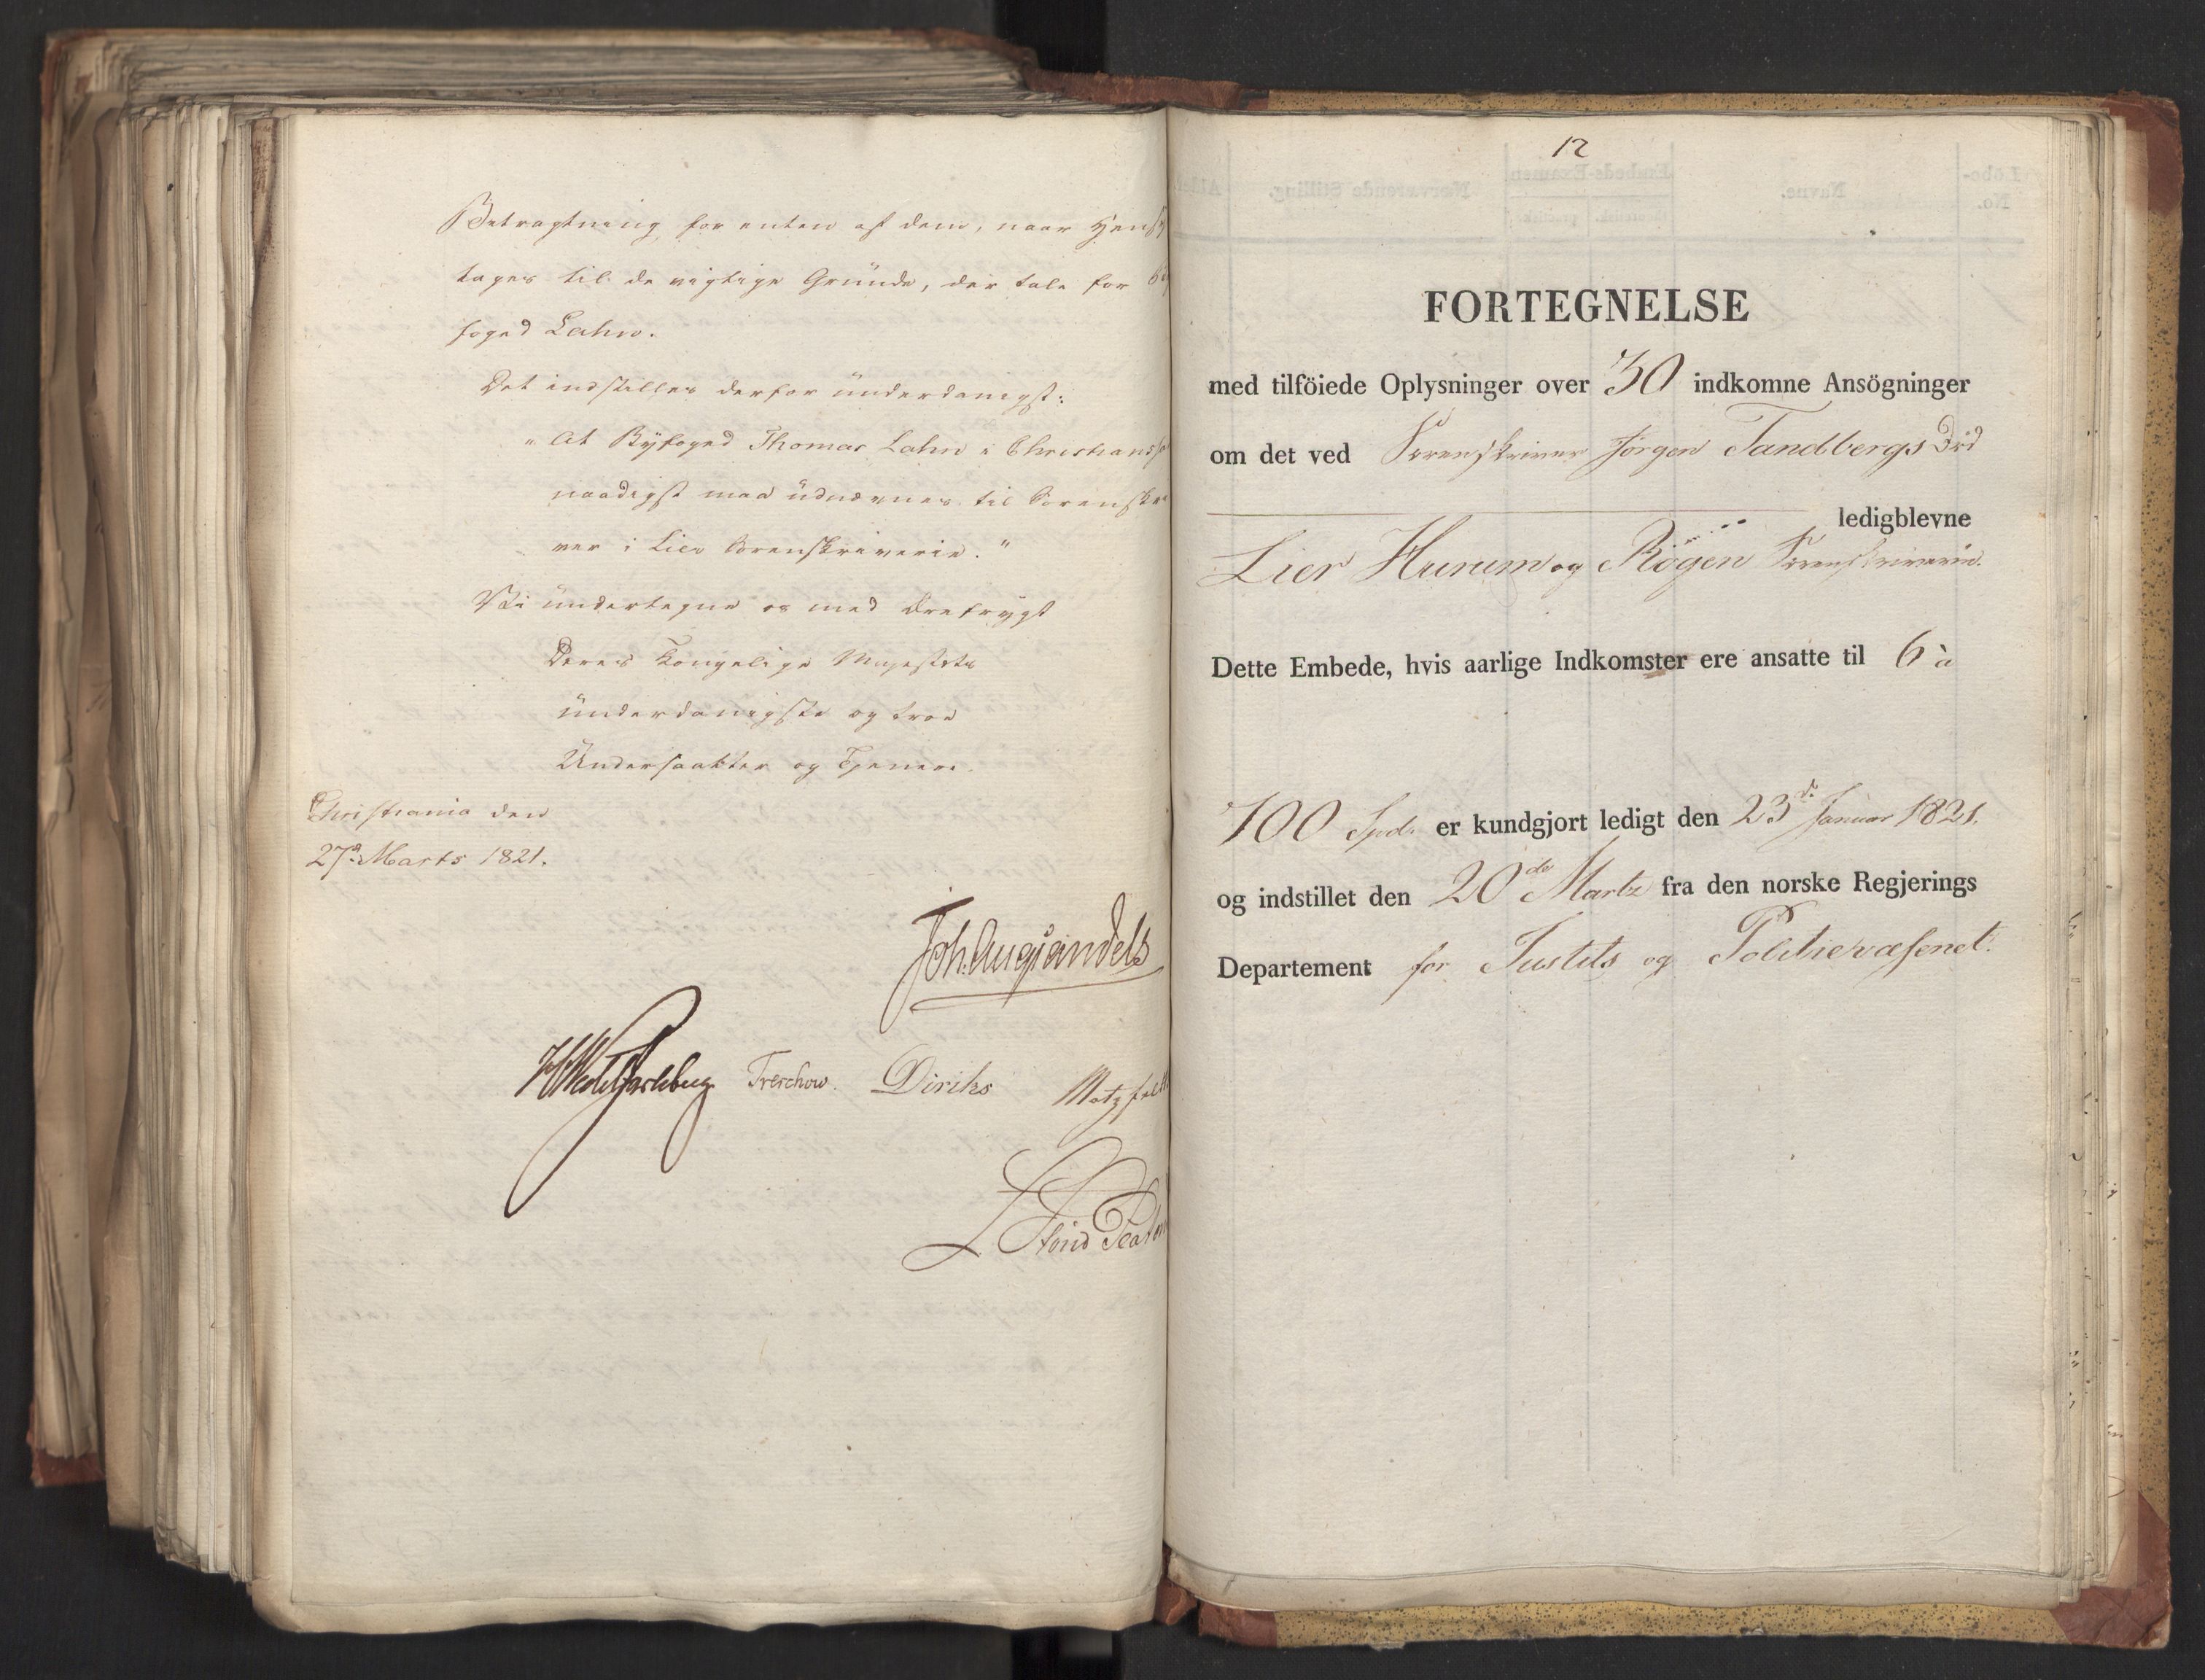 Betragtning for enten af dem, naar Hens
tages til de vigtige Gründe, der tale for By
foged Lahn.
Det indstilles derfor ünderdanigst:
"At Byfoged Thomas Lahn i Christianss
naadigst maa üdnævnes til Sorenskri
ver i Lier Sorenskriverie."
Vi ündertegne os med Ærefrygt
Deres Kongelige Majestæts
ünderdanigste og troe
Undersaatter og Tjenere.
Christiania den
27d Marts 1821.
Joh. Aug. Sandels
HWedelJarlsberg Treschow. Diriks Motzfeldt
12
FORTEGNELSE
med tilföiede Oplysninger over 30 indkomne Ansögninger
om det ved Sorenskriver Jørgen Tandbergs Död
ledigblevne
Lier Hurum og Rögen Sorenskriverie.
Dette Embede, hvis aarlige Indkomster ere ansatte til 6 à
700 Spd. er kundgjort ledigt den 23de Januar 1821.
og indstillet den 20de Martz fra den norske Regjerings
Departement for Justits og Politievæsenet.